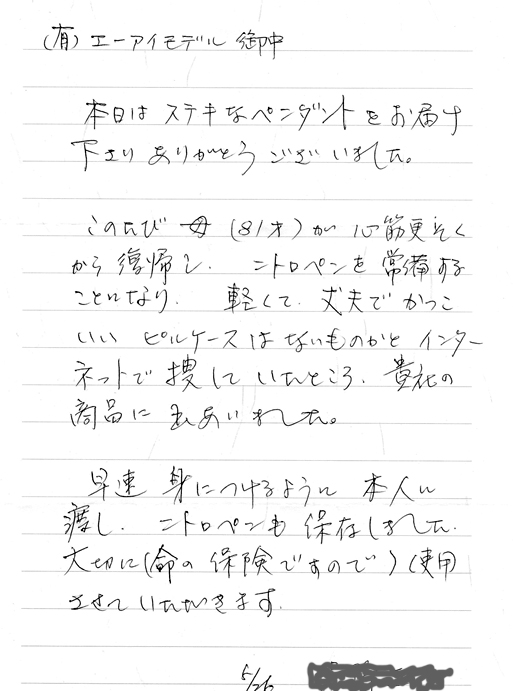 (有)エーアイモデル 御中
本日はステキなペンダントをお届け
下さりありがとうございました。
このたび 母(81才)が心筋更そく
から復帰し、ニトロペンを常備する
ことになり、軽くて、丈夫でかっこ
いい ピルケースはないものかとインター
ネットで捜していたところ、貴社の
商品に出あいました。
早速 身につけるように 本人に
渡し、ニトロペンも保存しました。
大切に(命の保険ですので)使用
させていただきます。
5/26